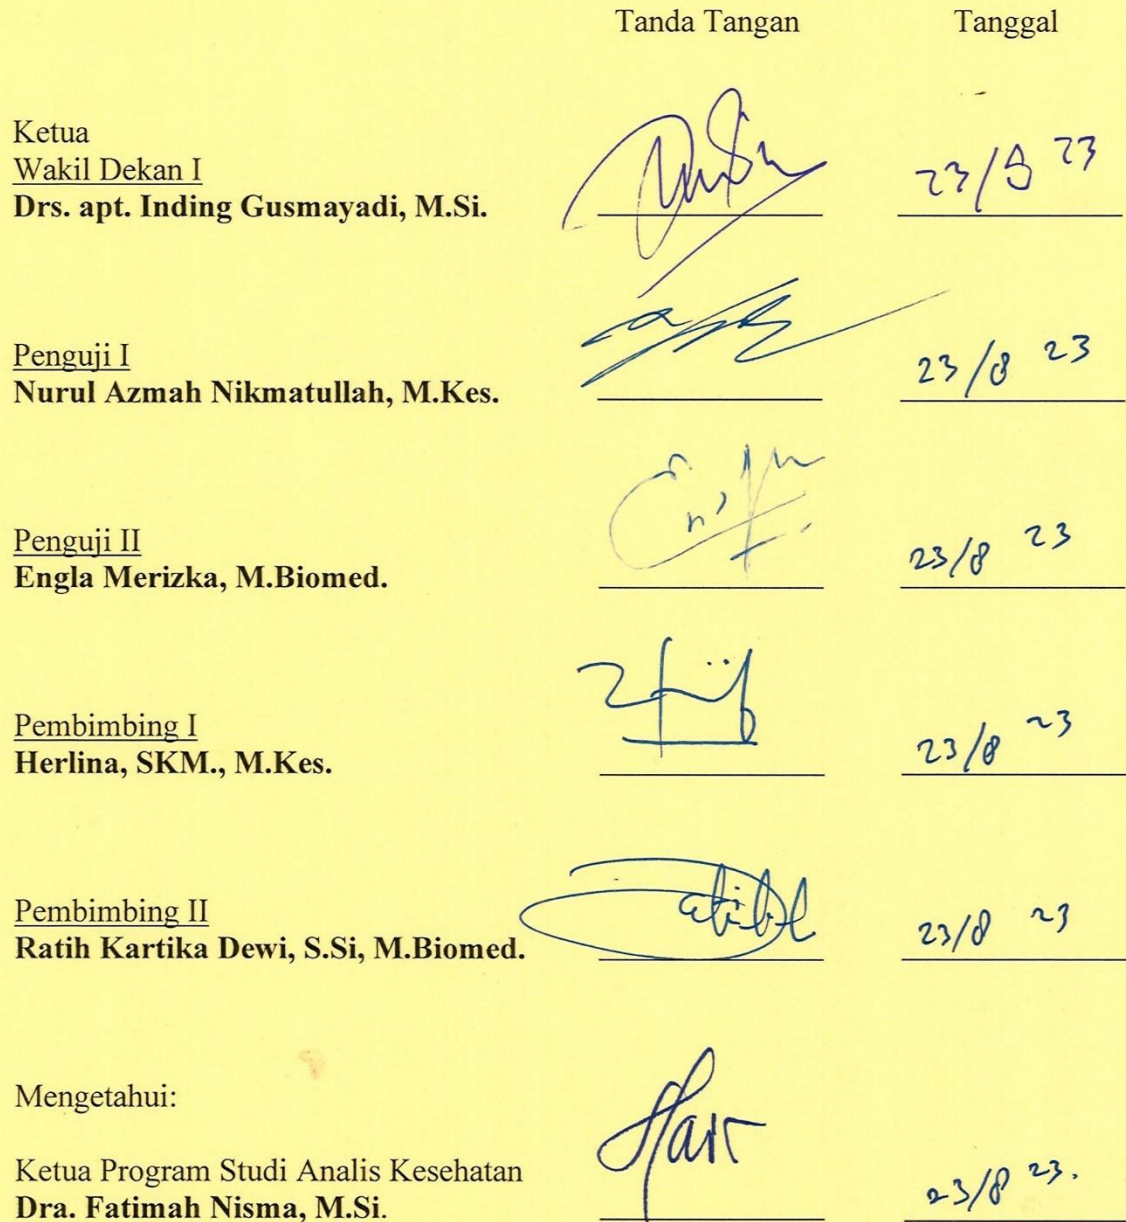 Tanda Tangan Tanggal
Ketua
Wakil Dekan I
Drs. apt. Inding Gusmayadi, M.Si. 23/ 23
Penguji I
Nurul Azmah Nikmatullah, M.Kes. 23/8 23
Penguji II
Engla Merizka, M.Biomed. 23/8 23
Pembimbing I
Herlina, SKM., M.Kes. 23/8 23
Pembimbing II
Ratih Kartika Dewi, S.Si, M.Biomed. 23/8 23
Mengetahui:
Ketua Program Studi Analis Kesehatan
Dra. Fatimah Nisma, M.Si. 23/8 23.